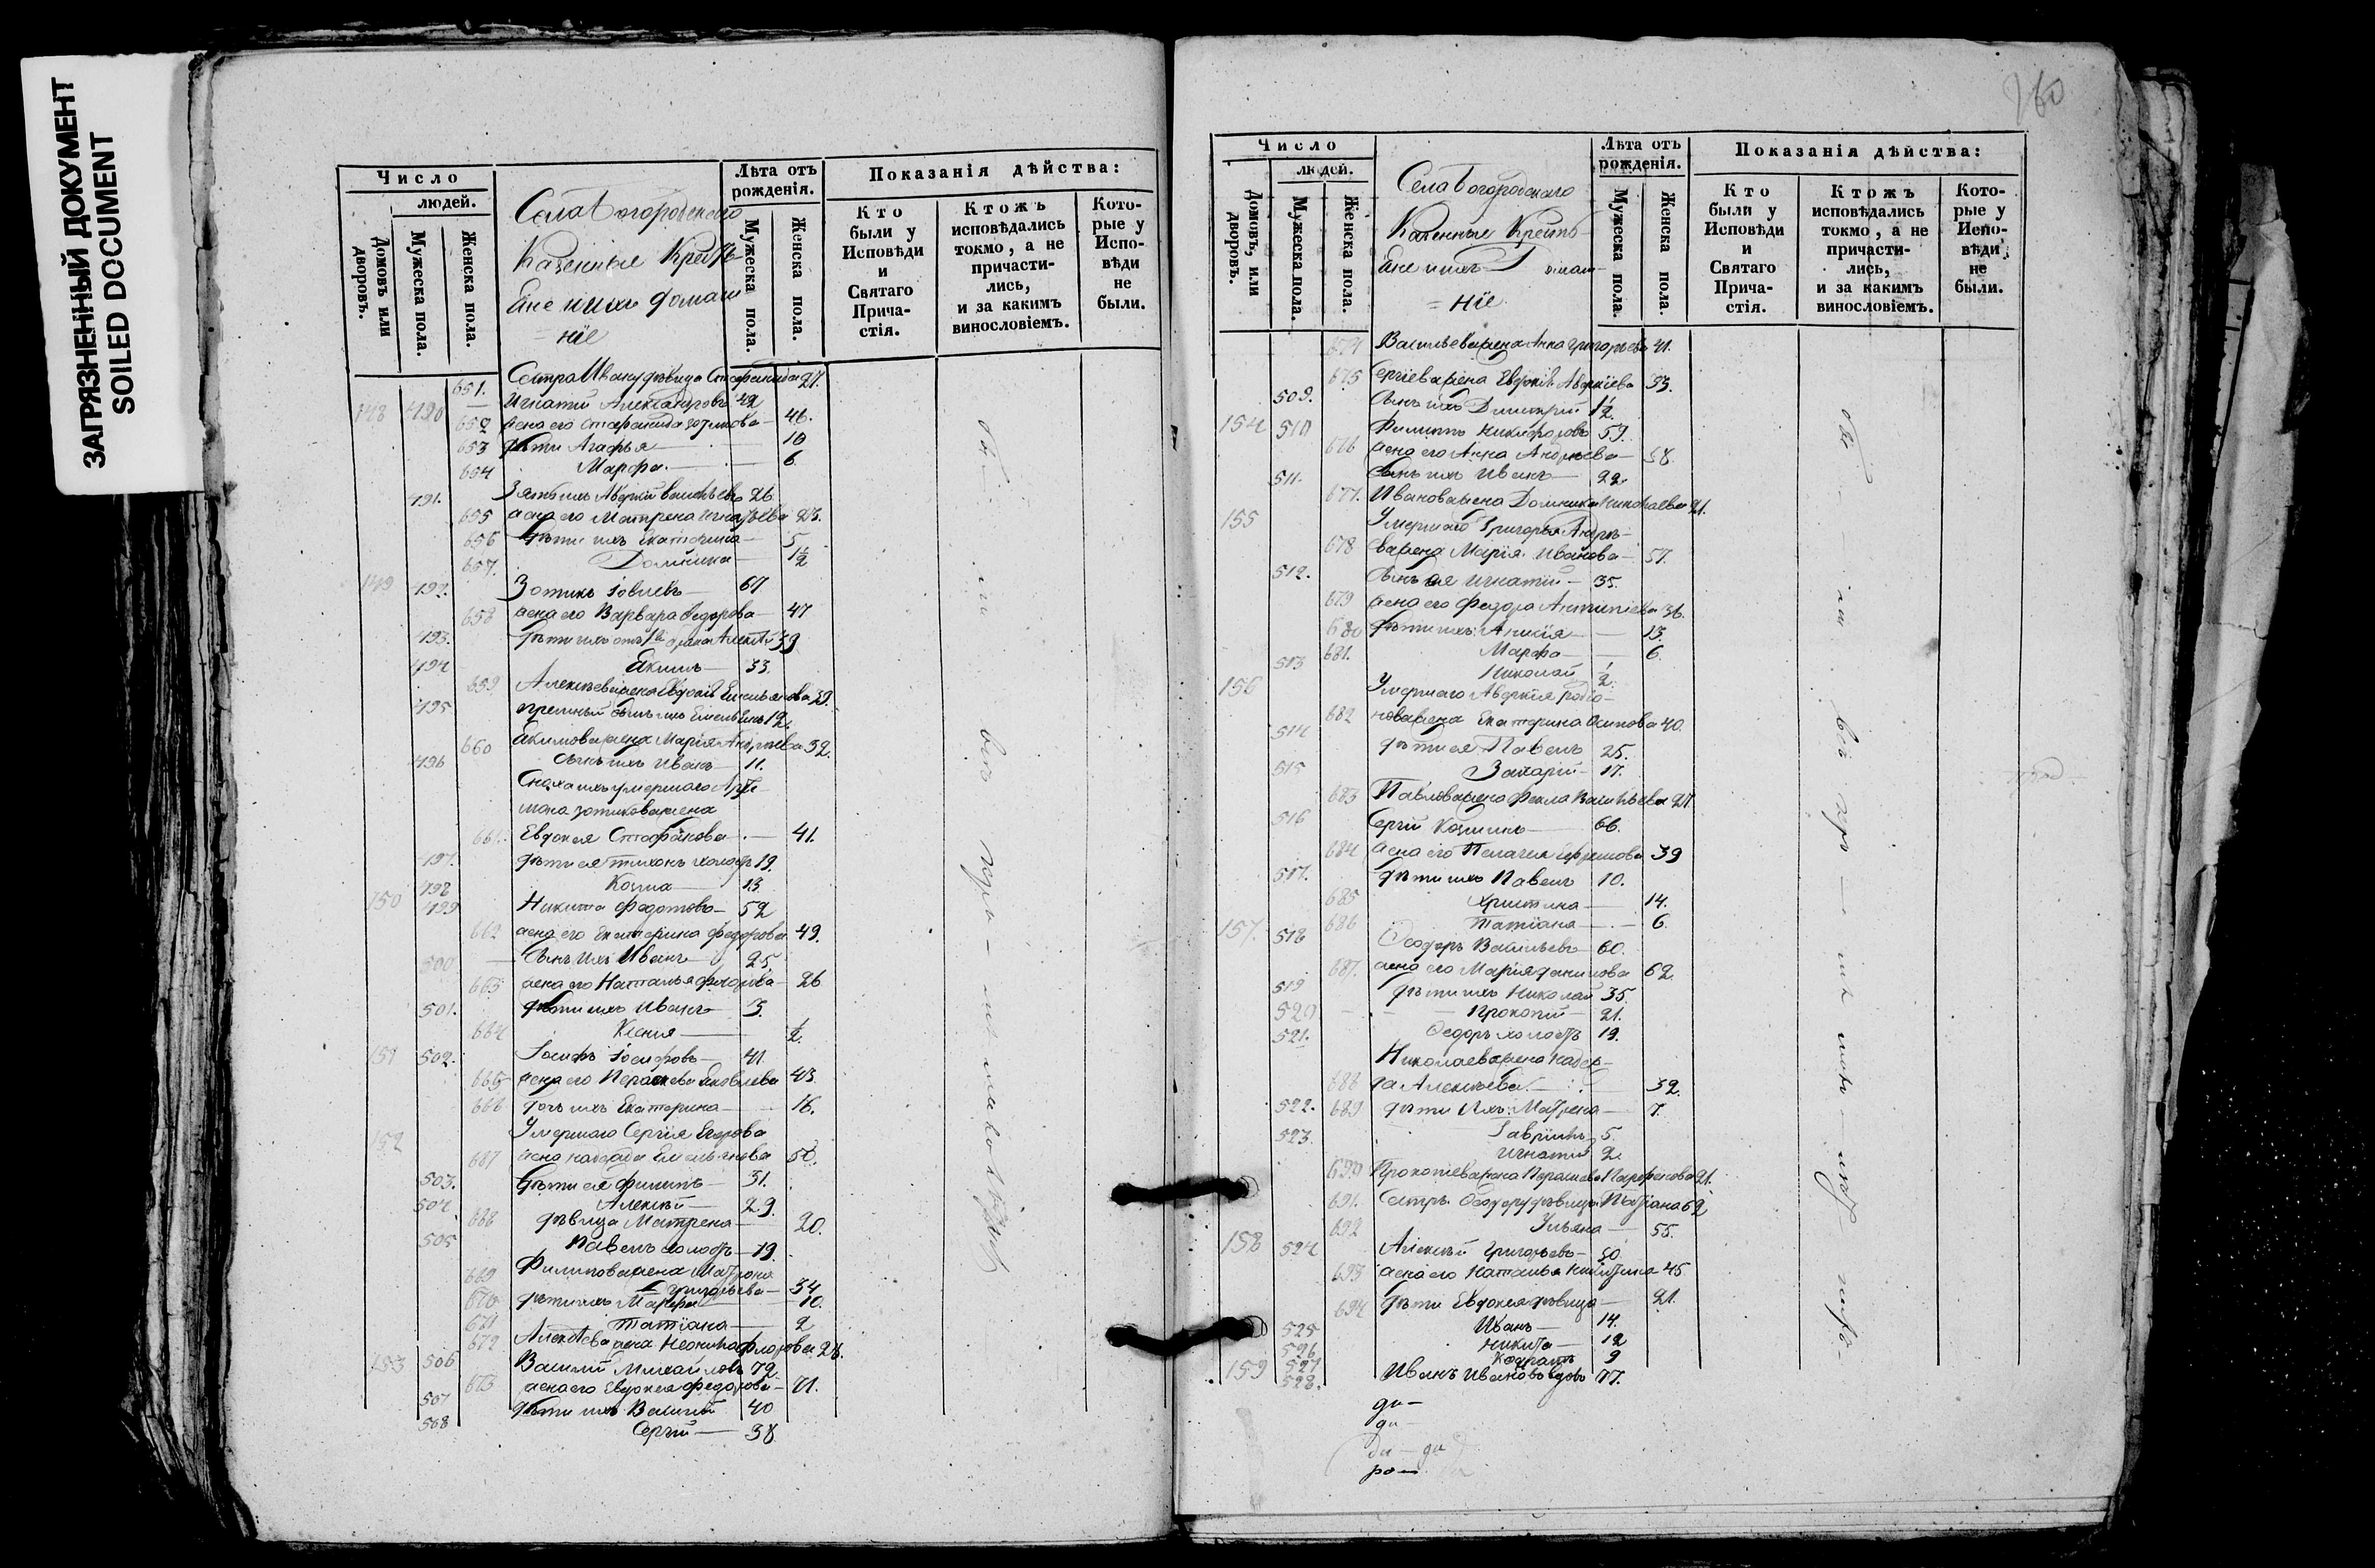 ЗАГРЯЗНЕННЫЙ ДОКУМЕНТ
SOILED DOCUMENT
Число
людей.
Домовъ или дворовъ.
Мужеска пола.
Женска пола.
Села Богородскаго
Казенные Крестья
не ихъ домаш
= нiе
Лѣта отъ рожденія.
Мужеска пола.
Женска пола.
Показанія дѣйства:
Кто были у Исповѣди и Святаго Прича-стія.
Ктожъ исповѣдались токмо, а не причасти-лись, и за какимъ винословіемъ.
Кото-рые у Испо-вѣди не были.
651. Сестра Ивану дѣвица Стефанида 27.
148 490 Игнатій Александровъ 49
652 жена его Стефанида 46.
653 дѣти Агафья 10
654 Марфа 6.
491. Зять ихъ Аверкій Васильевъ 26
655 жена его Матрена Игнатьева 23.
656 дѣти ихъ Екатерина 5
657. Домника 1½
149 492. Зотикъ Іовлевъ 67
658 жена его Варвара Федорова 47
493. дѣти ихъ отъ 1го брака Алексѣй 39
494 Екимъ 33
659 Алексѣева жена Евдокія Емельянова 39.
495 Емельянъ 12.
660 Екимова жена Марія Андреева 32.
496 Сынъ ихъ Иванъ 11.
Сноха ихъ умершаго
мона Зотикова жена
661. Евдокея Стефанова 41.
497. дѣти ея Тихонъ холостъ 19.
498 Козма 13
150 499 Никита Федотовъ 52
662 жена его Екатерина Федорова 49.
500 Сынъ ихъ Иванъ 25.
663 жена его Наталья 26
501. дѣти ихъ Иванъ 3.
664 Ксенія ½
151 502. Іосифъ Іосифовъ 41.
665 жена его Параскева Яковлева 43
666 дочь ихъ Екатерина 16.
152 Умершаго Сергія Егорова
667 жена Емельянова 50.
503. дѣти ея Филипъ 31.
504 Алексѣй 29.
668 дѣвица Матрена 20.
505 Павелъ холостъ 19.
669 Филипова жена Матрона
Григорьева 34
670 дѣти ихъ Марфа 10.
671 Татіана 2
672 Алексѣева жена 28.
153 506 Василій Михайловъ 72
673 жена его Евдокея Федорова 71.
507 дѣти ихъ Василій 40
508 Сергѣй 38
260
Число
людей.
Домовъ, или дворовъ.
Мужеска пола.
Женска пола.
Села Богородскаго
Казенные Кресть
яне ихъ домаш
= нiе
Лѣта отъ рожденія.
Мужеска пола.
Женска пола.
Показанія дѣйства:
Кто были у Исповѣди и Святаго Прича-стія.
Ктожъ исповѣдались токмо, а не причасти-лись, и за какимъ винословіемъ.
Кото-рые у Испо-вѣди не были.
674 Васильева жена Анна Григорьева 41.
675 Сергіева жена Евдокія Аверкіева 33.
509. Сынъ ихъ Димитрій 1½
154 510 Филиппъ Никифоровъ 59.
676 жена его Анна Андреева 58.
511. Сынъ ихъ Иванъ 22.
677. Иванова жена Домника Николаева 21.
155 Умершаго Григорья Андре-
678 ева жена Марія Иванова 57.
512. Сынъ ея Игнатій 35.
679 жена его Федора Антипіева 36.
680 дѣти ихъ: Анисія 13.
681. Марфа 6.
513 Николай ½
156 Умершаго Аверкія Родіо-
682 нова жена Екатерина Осипова 40.
514 дѣти ея Павелъ 25.
515 Захарій 17.
683 Павлова жена Фекла Васильева 27
516 Сергѣй Козминъ 66.
684 жена его Пелагея Ефремова 39
517. дѣти ихъ Павелъ 10.
685 Христина 14.
686 Татіана 6.
157. 518 Ѳеодоръ Васильевъ 60.
687. жена его Марія Данилова 62.
519 дѣти ихъ Николай 35.
520 Прокопій 21.
521. Ѳедоръ холостъ 19.
Николаева жена Надеж-
688 да Алексѣева 32.
522. 689 дѣти ихъ: Матрена 7.
523. Гаврiилъ 5.
Игнатій 2
690 Прокопіева жена Параскева Парфенова 21.
691. Сестра Ѳеодору дѣвица Татіана 62
692 Ульяна 55.
158 524 Алексѣй Григорьевъ 50.
693 жена его Наталья Никитина 45
694 дѣти Евдокея дѣвица 21.
525 Иванъ 14.
526 Никита 12
527 Кодратъ 9
159 528. Иванъ Ивановъ вдовъ 77.
ди
ди
ди ди